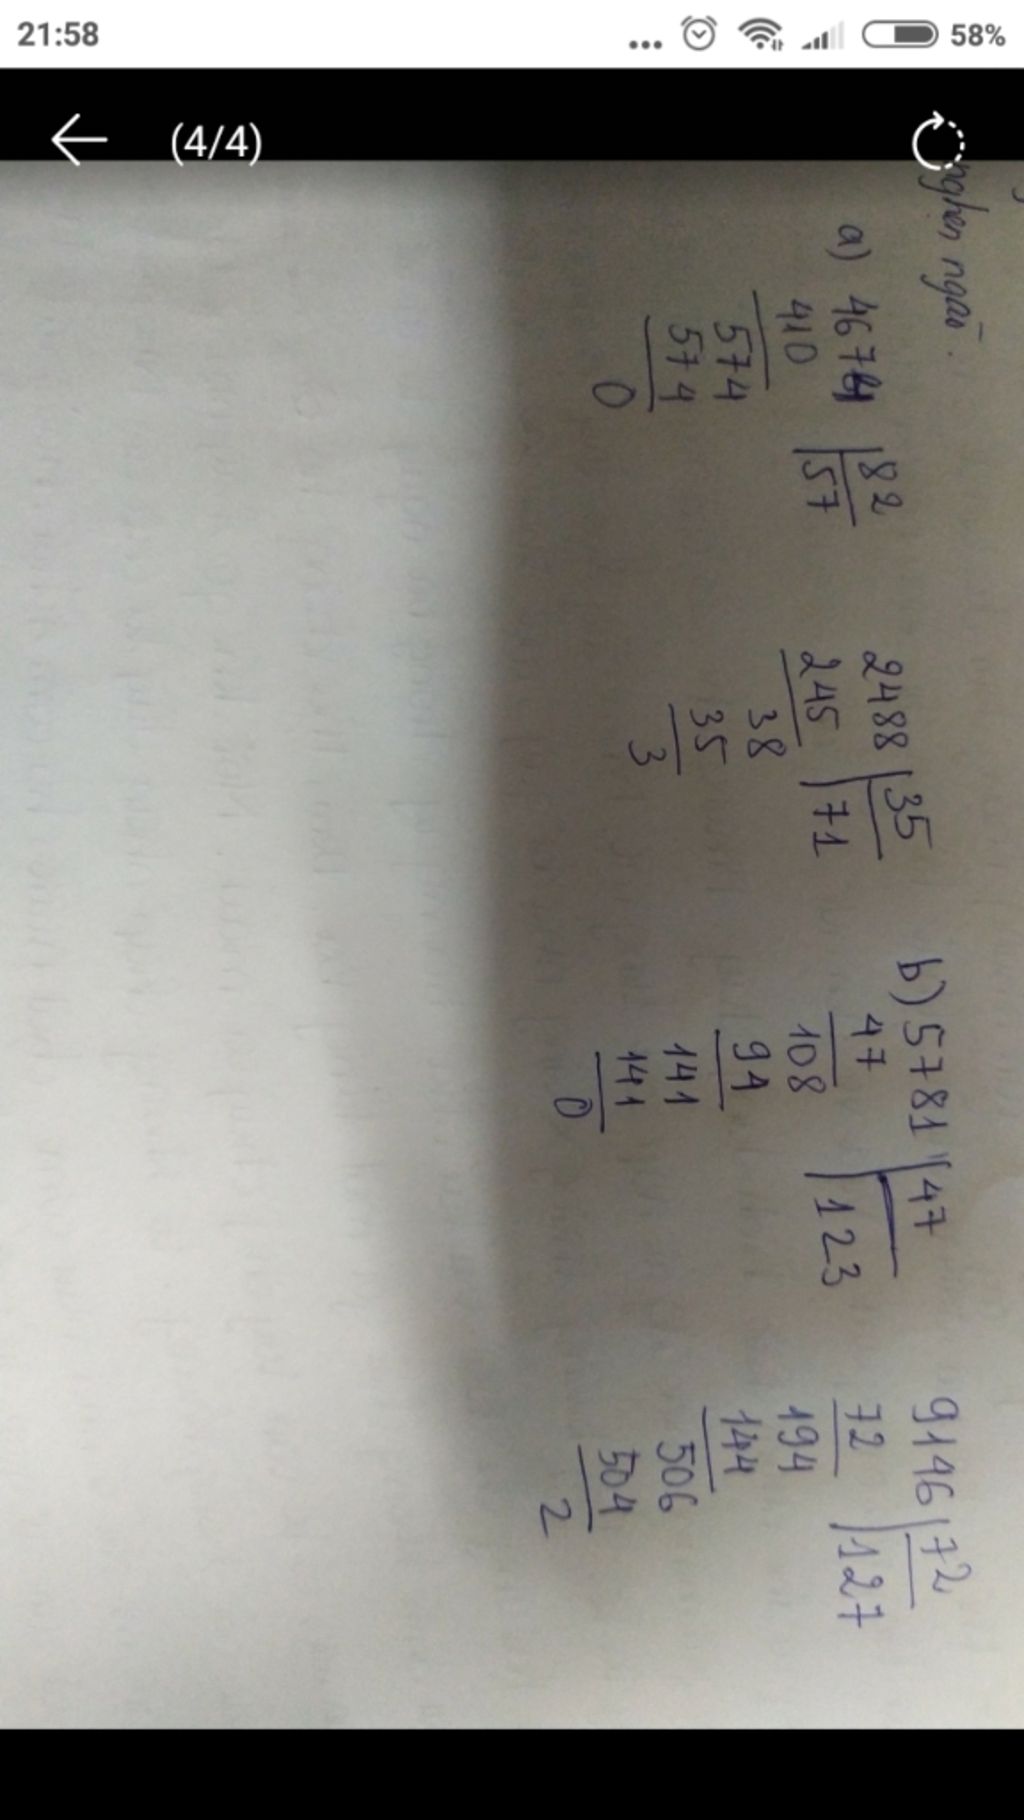 21:58 ... 58%
(4/4)
nghẹn ngào.
a) 4674 82
410 57
574
574
0
2488 35
245 71
38
35
3
b) 5781 47
47 123
108
94
141
141
0
9146 72
72 127
194
144
506
504
2